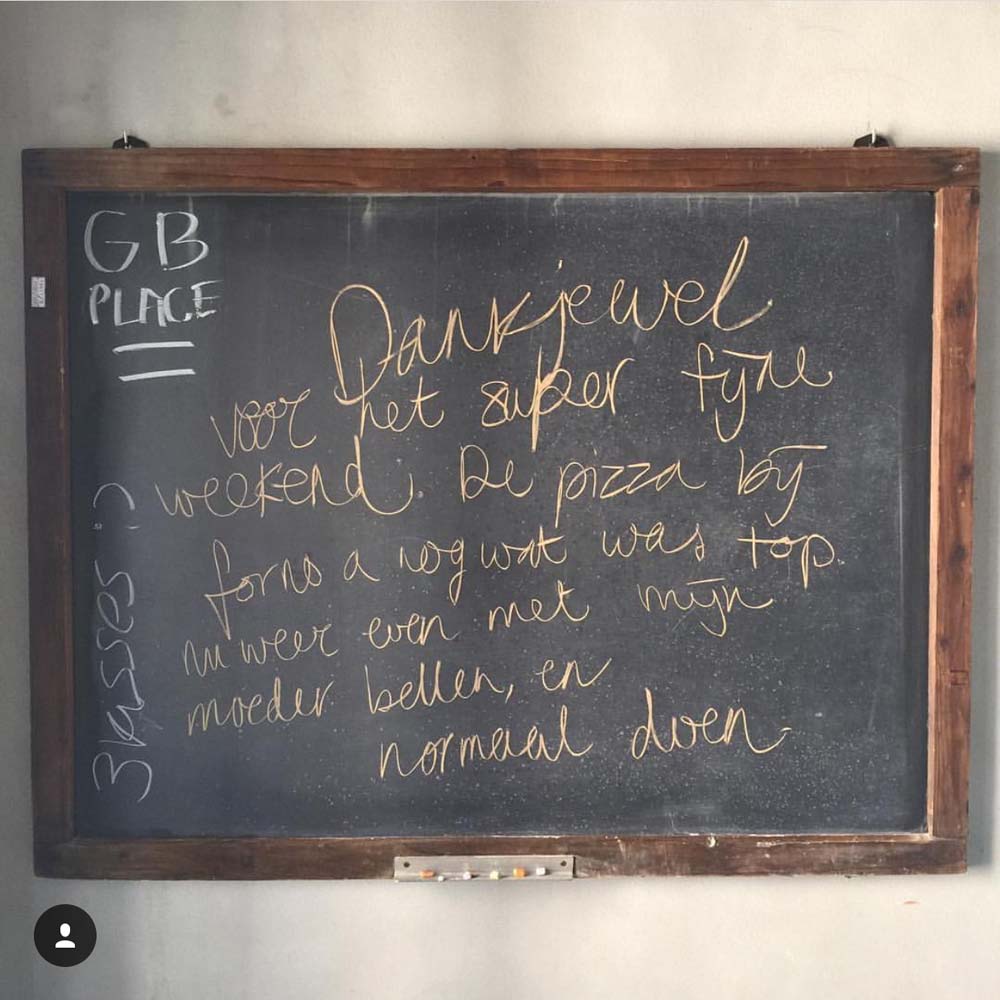 GB
PLACE
Dankjewel
voor het super fijne
weekend. De pizza bij
forno a nog wat was top.
nu weer even met mijn
moeder bellen, en
normaal doen
:)